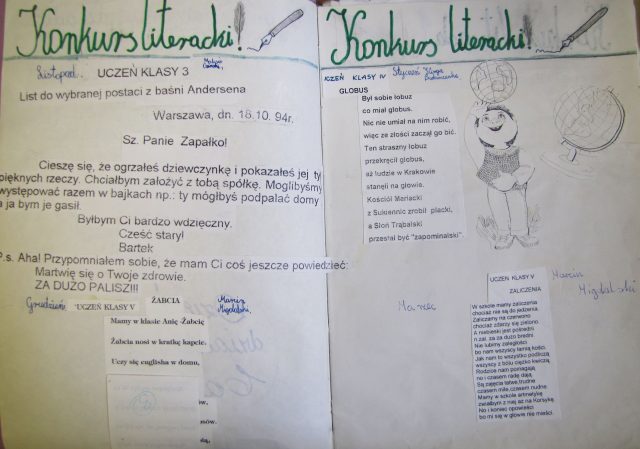 Konkurs literacki!
Listopad. UCZEŃ KLASY 3
List do wybranej postaci z baśni Andersena
Warszawa, dn. 18.10. 94r.
Sz. Panie Zapałko!
Cieszę się, że ogrzałeś dziewczynkę i pokazałeś jej ty
pięknych rzeczy. Chciałbym założyć z tobą spółkę. Moglibyśmy
występować razem w bajkach np.: ty mógłbyś podpalać domy
a ja bym je gasił.
Byłbym Ci bardzo wdzięczny.
Cześć stary!
Bartek
P.s. Aha! Przypomniałem sobie, że mam Ci coś jeszcze powiedzieć:
Martwię się o Twoje zdrowie.
ZA DUŻO PALISZ!!!
Grudzień UCZEŃ KLASY V ŻABCIA Marcin Migdalski
Mamy w klasie Anię -Żabcię
Żabcia nosi w kratkę kapcie.
Uczy się englisha w domu,
Konkurs literacki!
UCZEŃ KLASY IV Styczeń
GLOBUS
Był sobie łobuz
co miał globus.
Nic nie umiał na nim robić,
więc ze złości zaczął go bić.
Ten straszny łobuz
przekręcił globus,
aż ludzie w Krakowie
stanęli na głowie.
Kościół Mariacki
z Sukiennic zrobił placki,
a Słoń Trąbalski
przestał być "zapominalski".
Marzec
UCZEŃ KLASY V Marcin Migdalski
ZALICZENIA
W szkole mamy zaliczenia
chociaż nie są do jedzenia.
Zaliczamy na czerwono
chociaż zdarzy się zielono.
A niebieski jest pośredni
n.zal. za za dużo bredni.
Nie lubimy zaległości
bo nam wszyscy łamią kości.
Jak nam to wszystko podliczą
wszyscy z bólu ciężko kwiczą.
Rodzice nam pomagają
no i czasem radę dają.
Są zajęcia łatwe,trudne
czasem miłe,czasem nudne.
Mamy w szkole artmetykę
zwiałbym z niej aż na Korsykę.
No i koniec opowieści
bo mi się w głowie nie mieści.